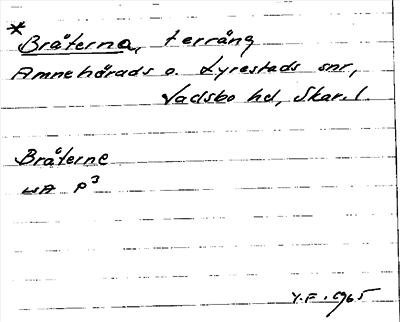 *
Bråterna, terräng
Amnehärads o. Lyrestads snr,
Vadsbo hd, Skar. l.
Bråterne
UA P³
Y.F. 1965